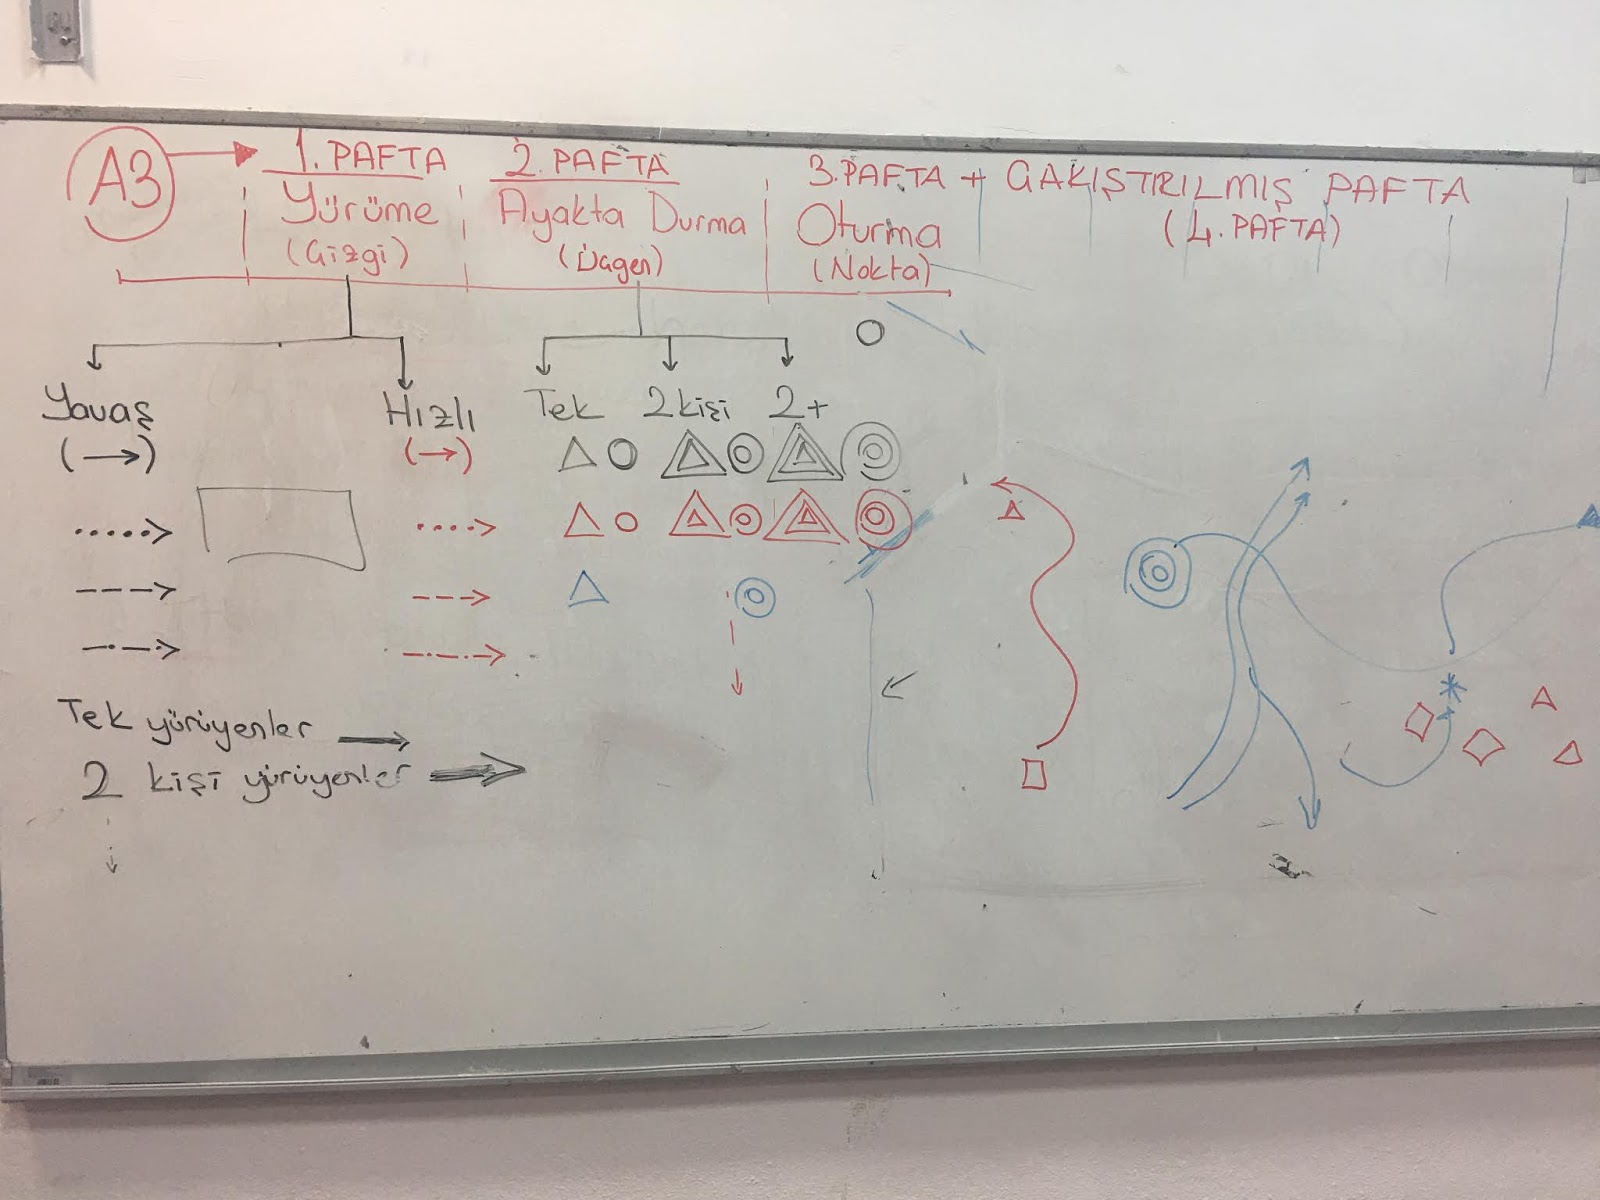 A3
1. PAFTA
Yürüme
(Çizgi)
2. PAFTA
Ayakta Durma
(Üçgen)
3. PAFTA + ÇAKIŞTIRILMIŞ PAFTA
(4. PAFTA)
Oturma
(Nokta)
Yavaş
Hızlı
Tek
2 kişi
2+
Tek yürüyenler
2 kişi yürüyenler